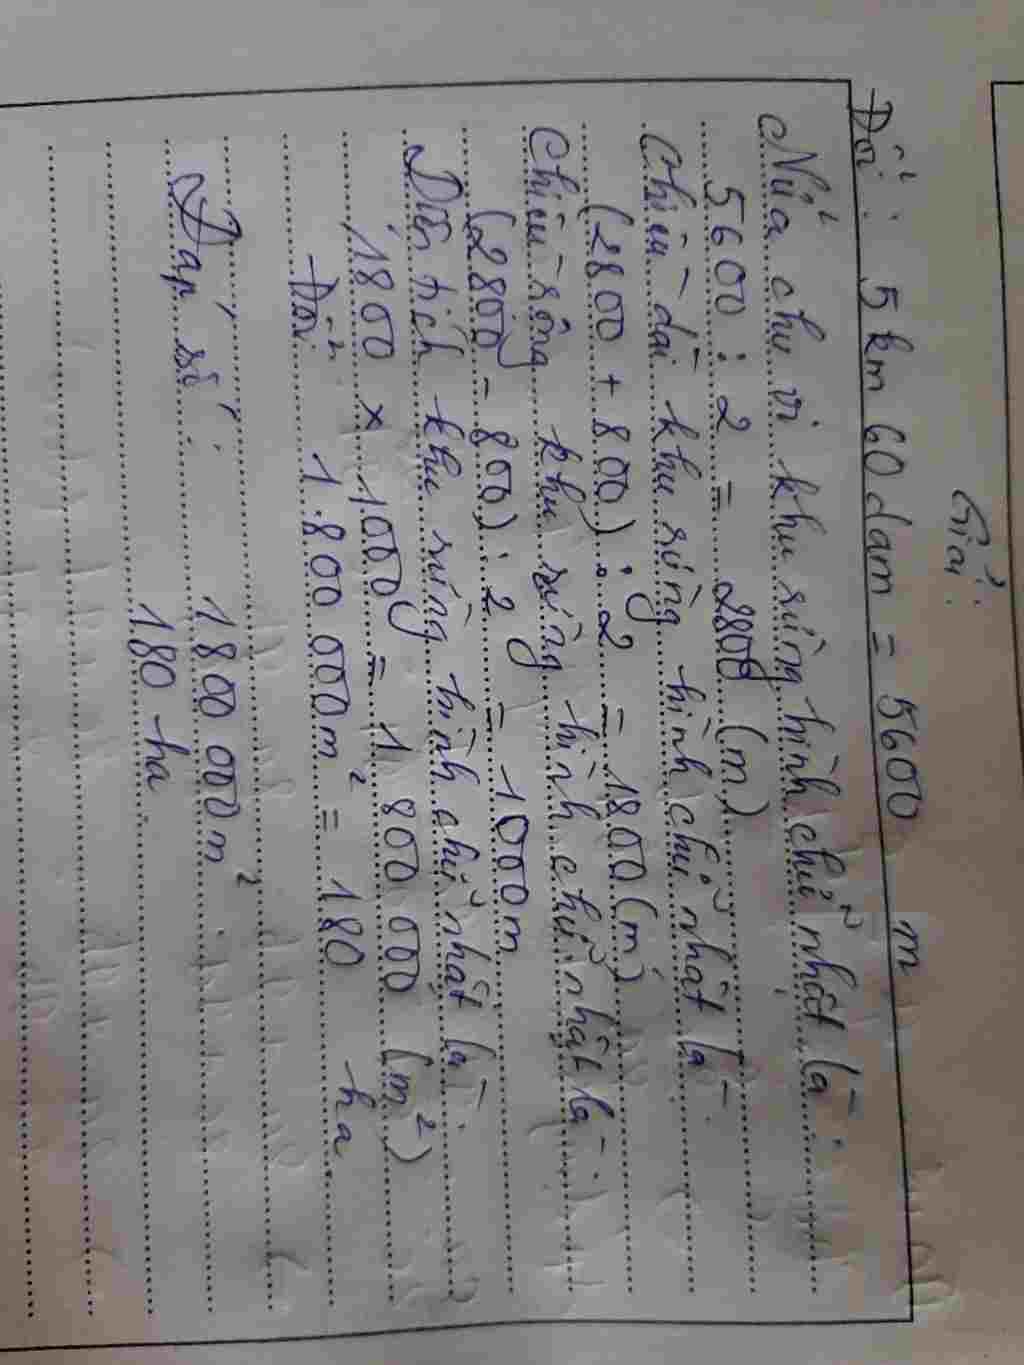 Giải:
Đổi: 5 km 60 dam = 5600 m
Nửa chu vi khu rừng hình chữ nhật là:
5600 : 2 = 2800 (m)
Chiều dài khu rừng hình chữ nhật là:
(2800 + 800) : 2 = 1800 (m)
Chiều rộng khu rừng hình chữ nhật là:
(2800 - 800) : 2 = 1000m
Diện tích khu rừng hình chữ nhật là:
1800 x 1000 = 1 800 000 (m²)
Đổi 1.800 000m² = 180 ha
Đáp số: 1800 000m²
180 ha